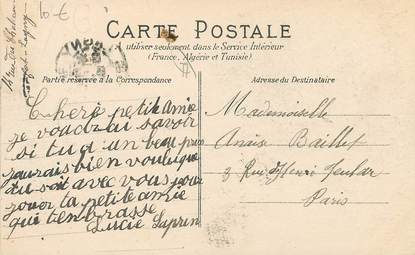 10-€
CARTE POSTALE
à utiliser seulement dans le Service Intérieur
(France, Algérie et Tunisie)
Partie réservée à la Correspondance
Adresse du Destinataire
Chère petite amie
je voudrai savoir
si tu a un beau
jaurais bien voulu que
tu soit avec vous pour
jouer ta petite amie
qui tembrasse
Lucie Laprun
Mademoiselle
Anaïs Baillet
3 Rue Henri
Paris